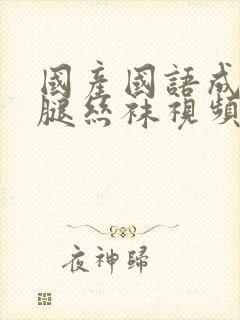 國產國語成
腿絲襪視頻
夜神歸